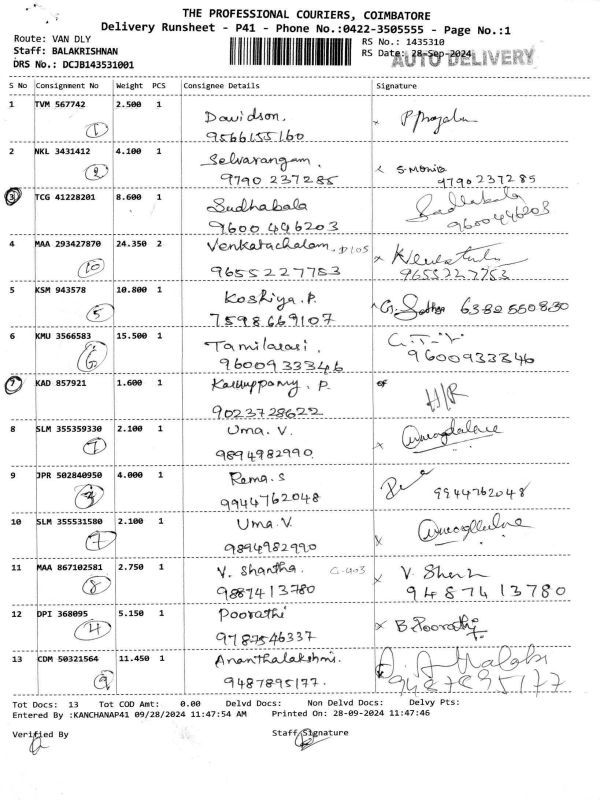 THE PROFESSIONAL COURIERS, COIMBATORE
Delivery Runsheet - P41 - Phone No.:0422-3505555 - Page No.:1
Route: VAN DLY
RS No.: 1435310
Staff: BALAKRISHNAN
RS Date: 28-Sep-2024
AUTO DELIVERY
DRS No.: DCJB143531001
S No Consignment No Weight PCS Consignee Details Signature
1 TVM 567742 2.500 1
Davidson.
1
9566155160
2 NKL 3431412 4.100 1
Selvarangam. S. Monib
2
9790 237285 9790 237285
3 TCG 41228201 8.600 1
Sudhabala
9600 446203 9600446203
4 MAA 293427870 24.350 2
Venkatachalam. D105
10
9655227753 9655227753
5 KSM 943578 10.800 1
Koshiya. P. 6382 550830
5
7598669107
6 KMU 3566583 15.500 1
Tamilarasi.
6
9600933346 9600933346
7 KAD 857921 1.600 1
Karuppamy. P. H/R
9023728622
8 SLM 355359330 2.100 1
Uma. V.
7
9894982990.
9 JPR 502840950 4.000 1
Rama. S
9944762048 9944762048
10 SLM 355531580 2.100 1
Uma. V.
7
9894982990
11 MAA 867102581 2.750 1
V. Shantha. G-403 V. Shen
8
9887413780 9487413780
12 DPI 368095 5.150 1
Poorathi B. Poorathi
4
9787546337
13 CDM 50321564 11.450 1
Ananthalakshmi.
9
9487895177. 9487895177
Tot Docs: 13 Tot COD Amt: 0.00 Delvd Docs: Non Delvd Docs: Delvy Pts:
Entered By :KANCHANAP41 09/28/2024 11:47:54 AM Printed On: 28-09-2024 11:47:46
Verified By Staff Signature